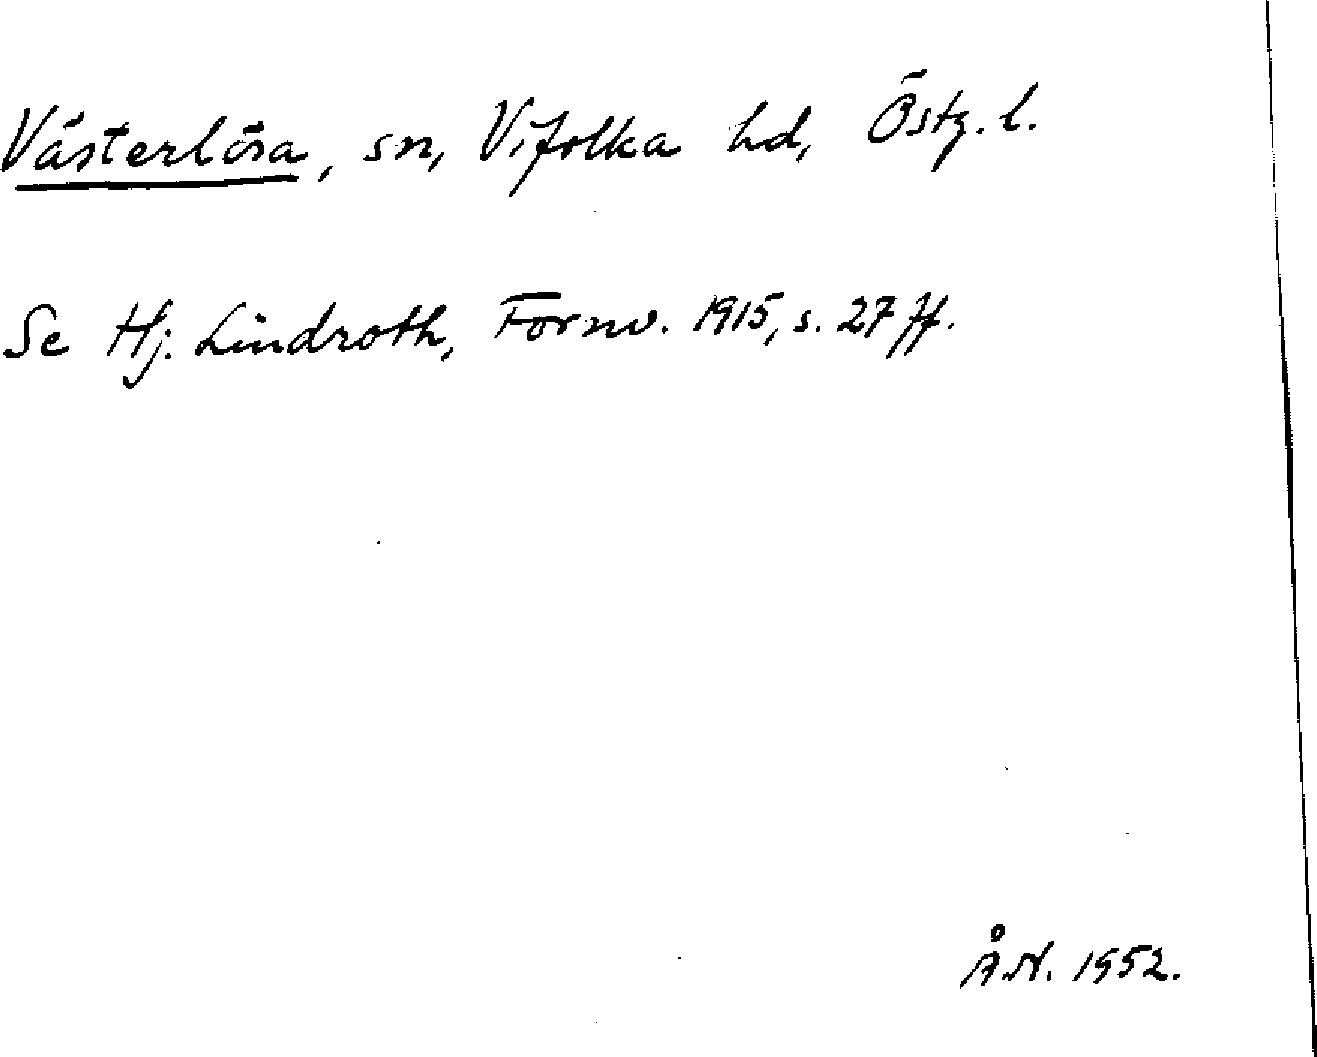 Västerlösa, sn, Vifolka hd, Östg. l.
Se Hj. Lindroth, Fornv. 1915, s. 27 ff.
Å.N. 1952.